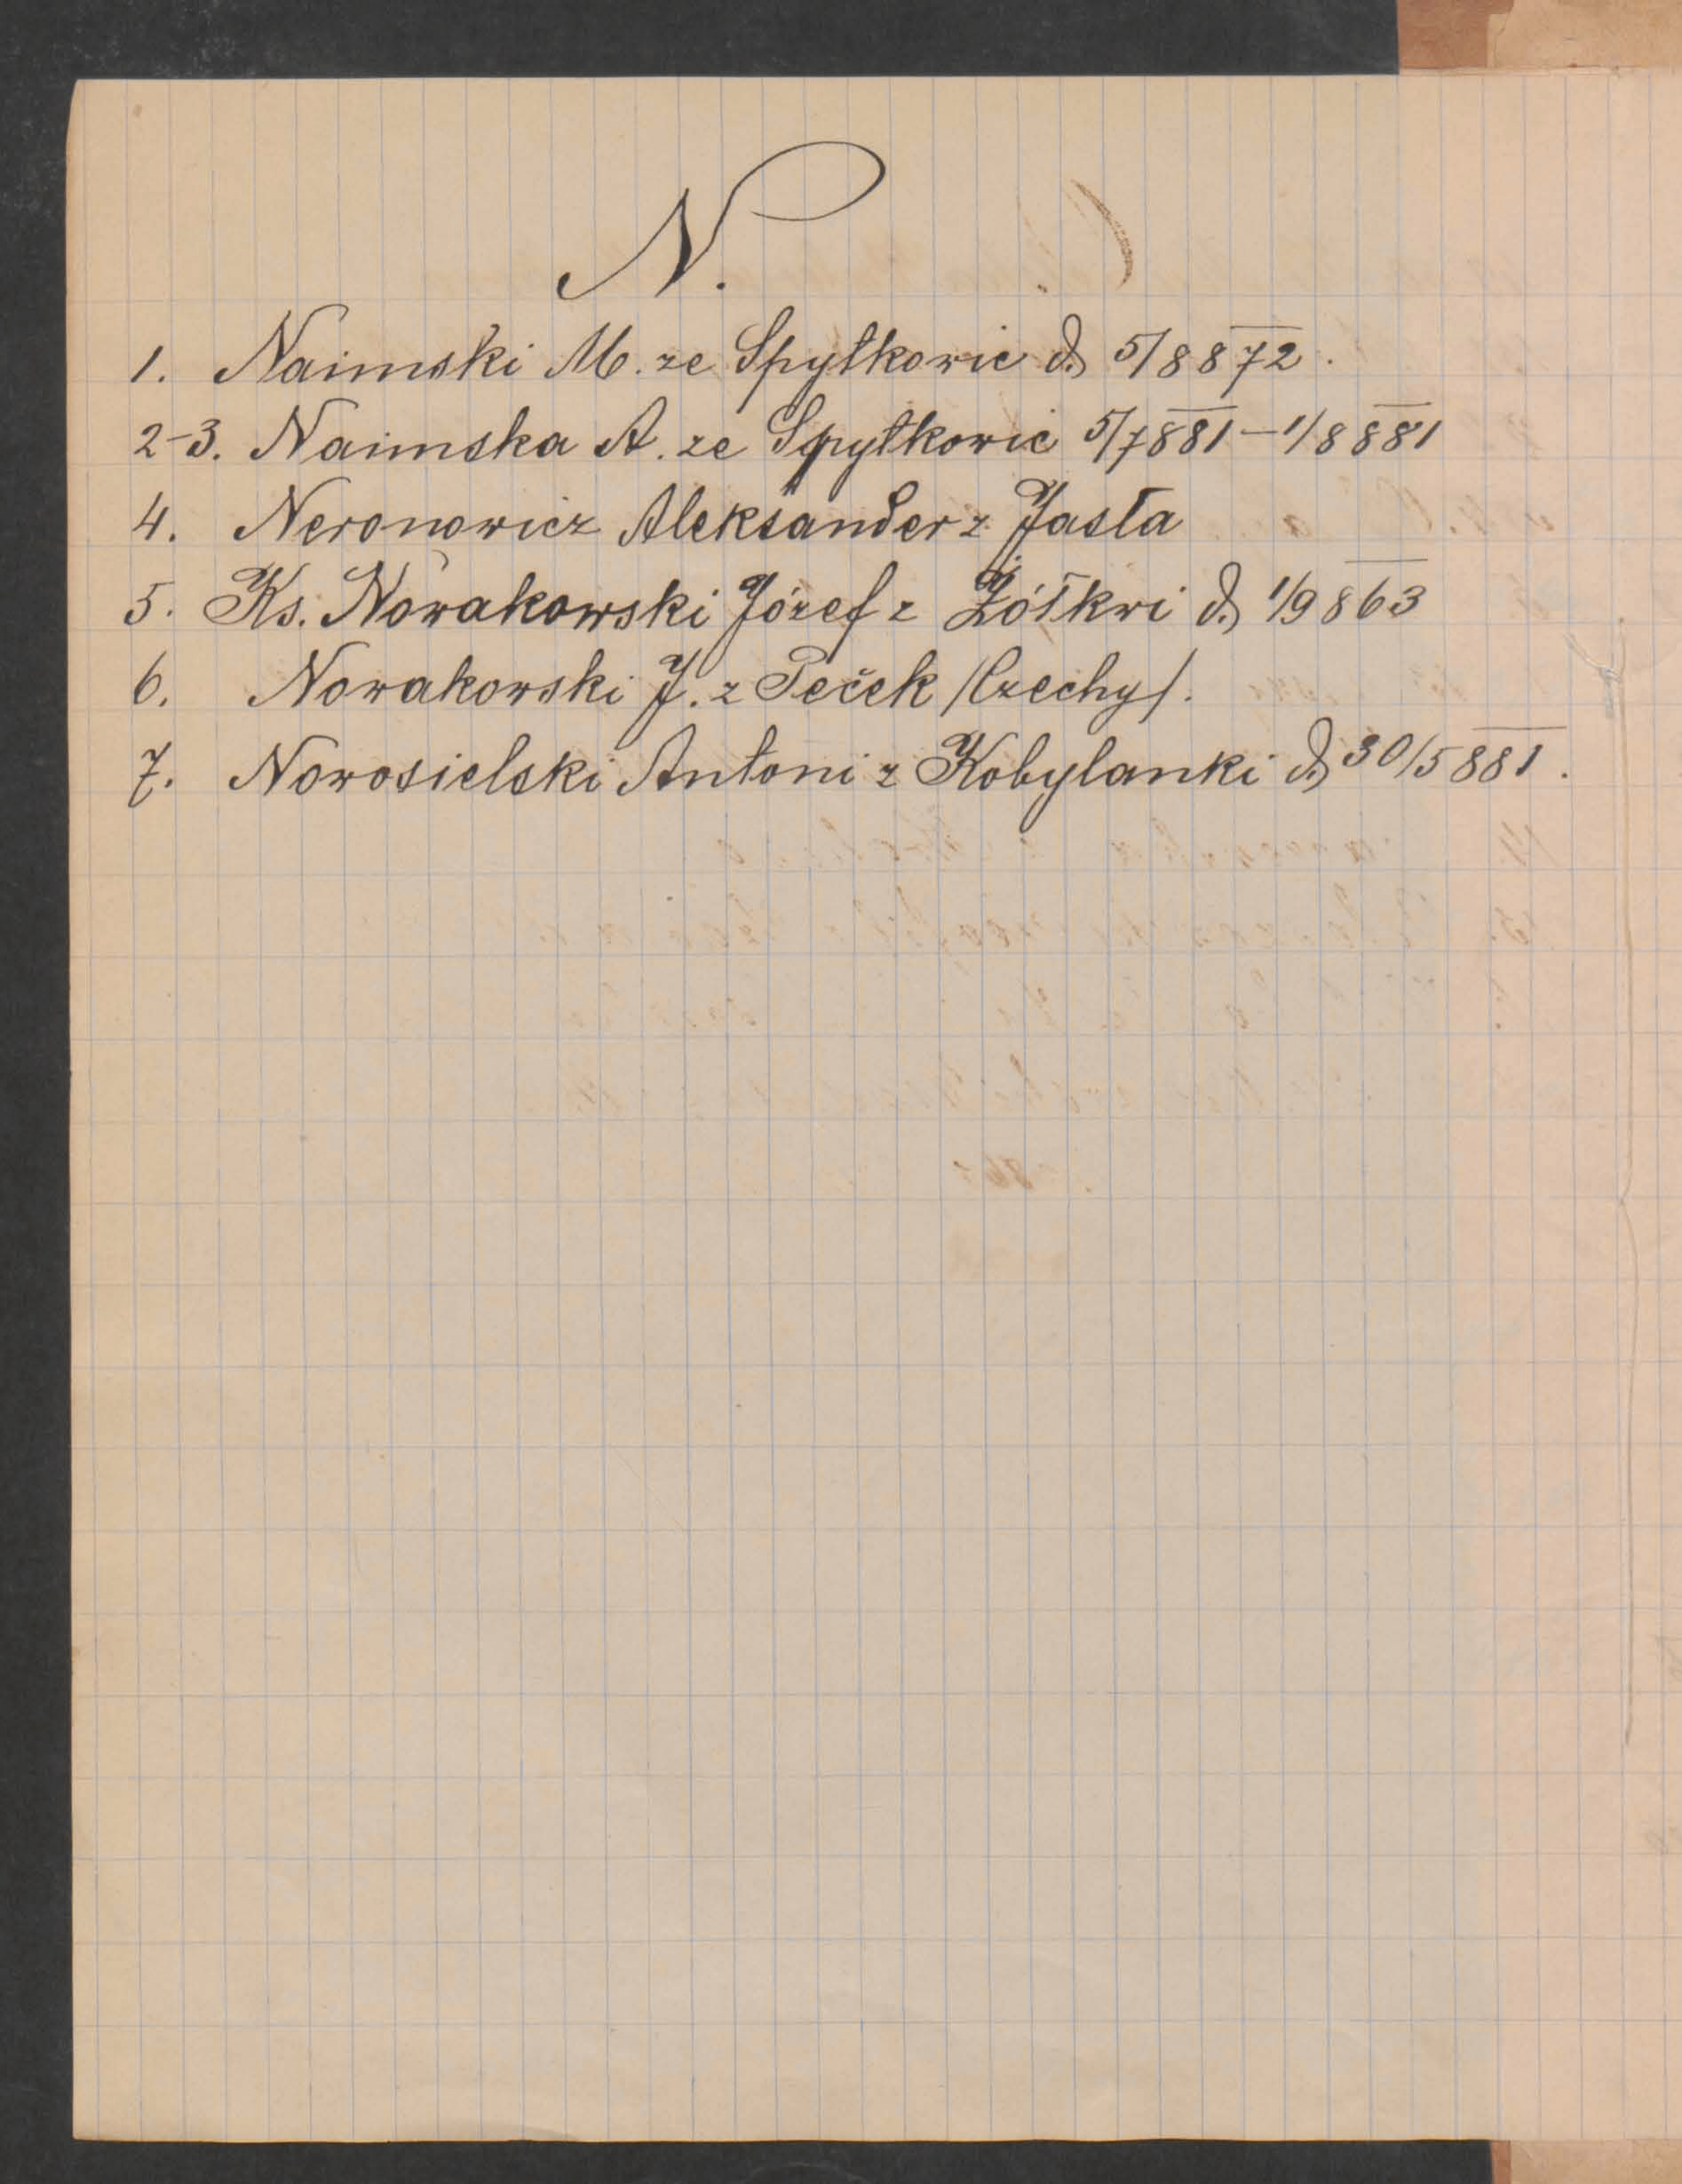 N.
1. Naimski M. ze Spytkowic d. 5/8 872.
2-3. Naimska A. ze Spytkowic 5/7 881 – 1/8 881
4. Neronowicz Aleksander z Jasła
5. Ks. Nowakowski Józef z Żółkwi d. 1/9 863
6. Nowakowski J. z Peček /Czechy/.
7. Nowosielski Antoni z Kobylanki d. 30/5 881.